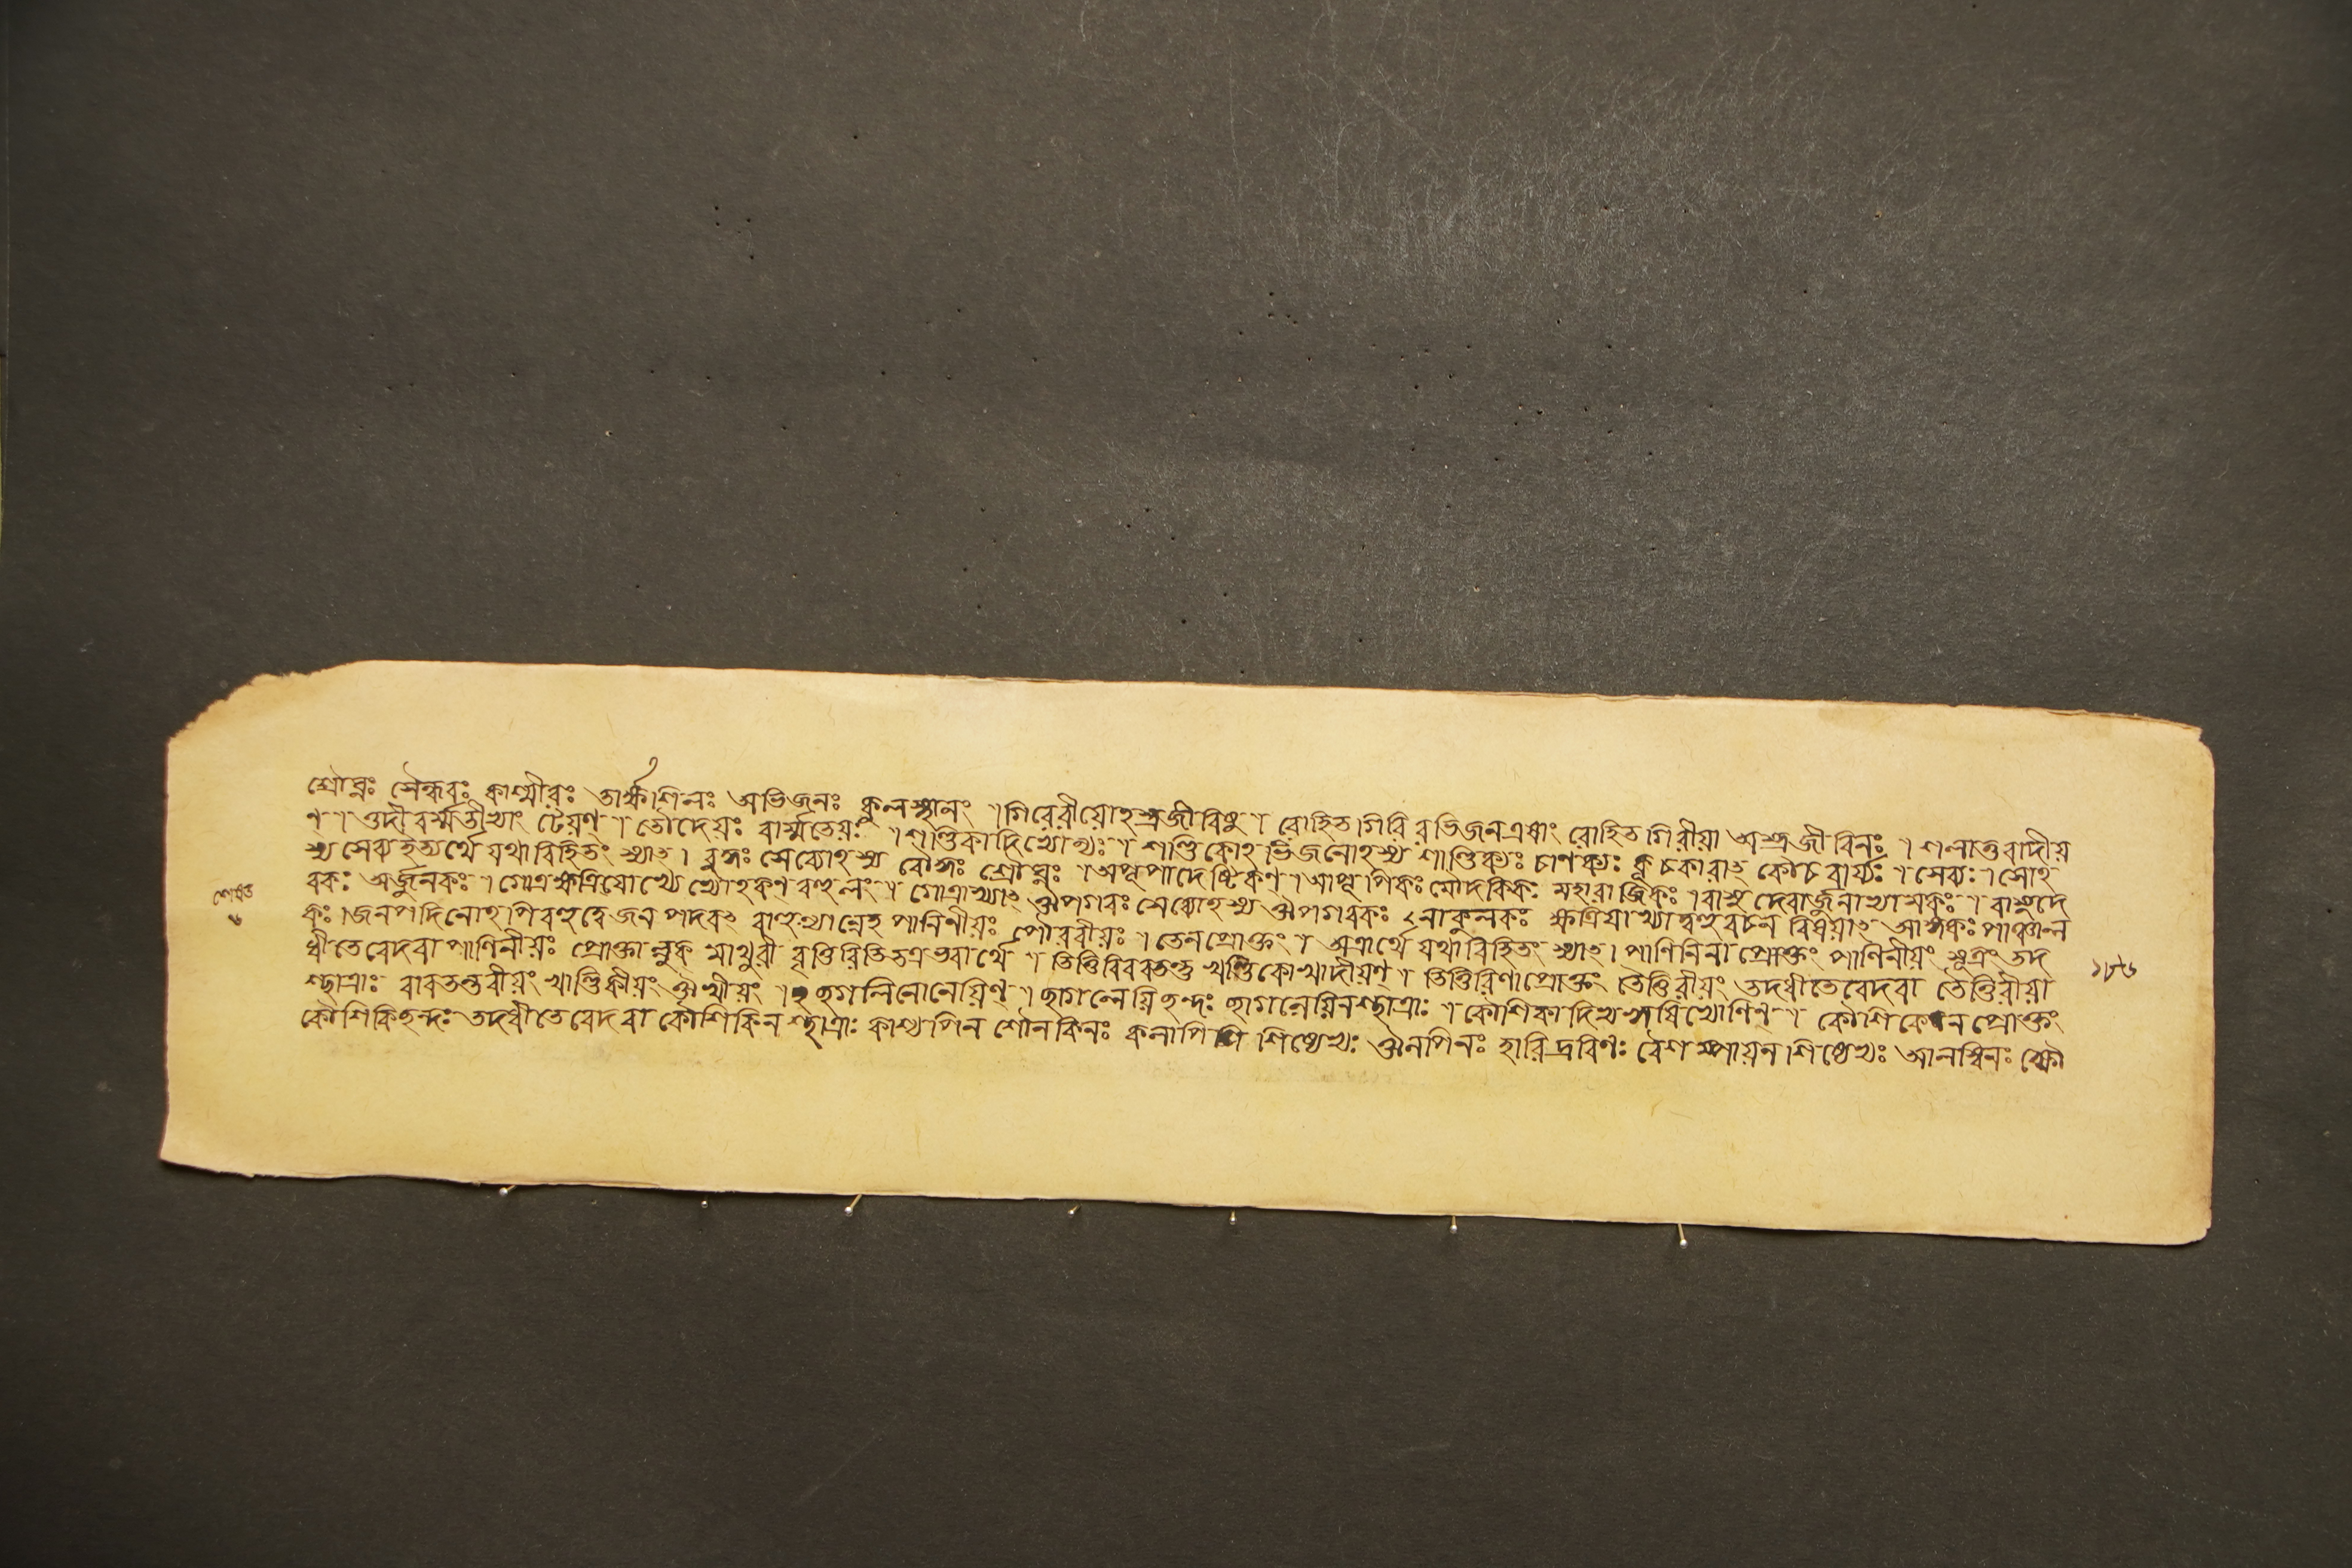 শ্রৌঘ্নঃ সৈন্ধবঃ কাশ্মীরঃ তার্ক্ষশিলঃ অভিজনঃ কুলস্থানং ৷ গিরেরীয়োহস্ত্রজীবিষু ৷ রোহিত গিরি রভিজন এষাং রোহিত গিরীয়া অস্ত্রজীবিনঃ ৷ শলাতুরাদীয়
ণ্ ৷ তুদীবর্ম্মতীভ্যাং ঢেয়ণ্ ৷ তৌদেয়ঃ বার্ম্মতেয়ঃ ৷ শণ্ডিকাদিভ্যোণ্যঃ ৷ শণ্ডিকোহভিজনোহস্য শাণ্ডিক্যঃ চাণক্যঃ কূচকারাৎ কৌচবার্য্যঃ ৷ সেব্যঃ ৷ সোহ
স্য সেব্য ইত্যর্থে যথাবিহিতং স্যাৎ ৷ বুদ্ধঃ সেব্যোহস্য বৌদ্ধঃ শ্রৌঘ্নঃ ৷ অপূপাদেষ্টিকণ্ ৷ আপূপিকঃ মৌদকিকঃ মহারাজিকঃ ৷ বাসুদেবার্জুনাভ্যামকঃ ৷ বাসুদে
বকঃ অর্জুনকঃ ৷ গোত্রক্ষত্রিয়াখ্যেভ্যোহকণ্ বহুলং ৷ গোত্রাখ্যাৎ ঔপগবঃ সেব্যোহস্য ঔপগবকঃ নাকুলকঃ ক্ষত্রিয়াখ্যাদ্বহুবচন বিষয়াৎ আঙ্গকঃ পাঞ্চাল
কঃ ৷ জনপদিনোহপিবহুত্বে জনপদবৎ বাহুল্যান্নেহ পাণিনীয়ঃ পৌরবীয়ঃ ৷ তেনপ্রোক্তং ৷ অত্রার্থে যথাবিহিতং স্যাৎ ৷ পাণিনিনা প্রোক্তং পাণিনীয়ং সূত্রং তদ
ধীতে বেদবা পাণিনীয়ঃ প্রোক্তাল্লুক্ মাথুরী বৃত্তিরিতিতত্রভবার্থে ৷ তিত্তিরিবরতন্তু খণ্ডিকোখাদীয়ণ্ ৷ তিত্তিরিণাপ্রোক্তং তৈত্তিরীয়ং তদধীতে বেদবা তৈত্তিরীয়া
শ্ছাত্রাঃ বারতন্তবীয়ং খাণ্ডিকীয়ং ঔখীয়ং ৷ ছগলিনোনেয়িণ্ ৷ ছাগলেয়িছন্দঃ ছাগলেয়িনশ্ছাত্রাঃ ৷ কৌশিকাদিভ্যঋষিভ্যোণিন্ ৷ কৌশিকেন প্রোক্তং
কৌশিকিছন্দঃ তদধীতে বেদবা কৌশিকিনশ্ছাত্রাঃ কাশ্যপিন শৌনকিনঃ কলাপি শিষ্যেভ্যঃ ঔলপিনঃ হারিদ্রবিণঃ বৈশম্পায়ন শিষ্যেভ্যঃ আলম্বিনঃ
১৮৬